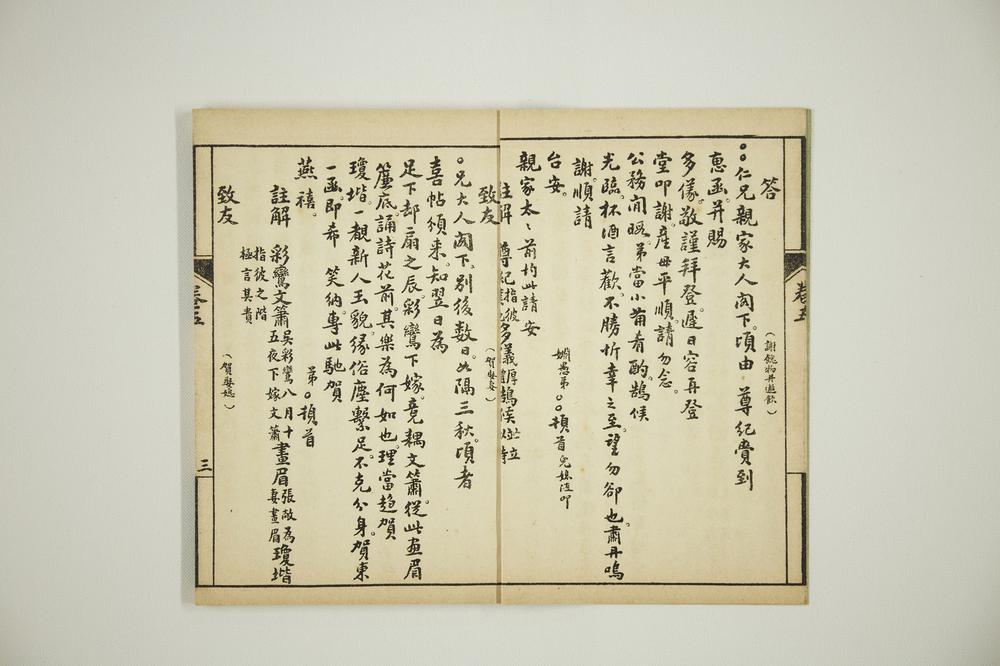 答
(謝餽物并邀飲)
○○仁兄親家大人閣下。頃由 尊紀賫到
惠函。并賜
多儀。敬謹拜登。遲日容再登
堂叩謝。產母平順。請勿念。
公務閒暇。弟當小葡肴酌。鵠候
光臨。杯酒言歡。不勝忻幸之至。望勿卻也。肅丹鳴
謝。順請
台安。
親家太○前均此請安
姻愚弟○○頓首兒媳隨叩
註解
卷五
致友
(賀娶妻)
○兄大人閣下。別後數日。如隔三秋。頃者
喜帖頒來。知翌日為
足下却扇之辰。彩鸞下嫁。竟耦文簫。從此画眉
簾底。誦詩花前。其樂為何如也。理當趨賀
瓊堦。一覩新人玉貌。緣俗塵繫足。不克分身。賀柬
一函。即希 笑納。專此馳賀
燕禧。
弟○頓首
註解 彩鸞文簫吳彩鸞八月十五夜下嫁文簫畫眉張敞為妻畫眉瓊堦
指彼之階極言其貴
致友
(賀娶媳)
卷五
三